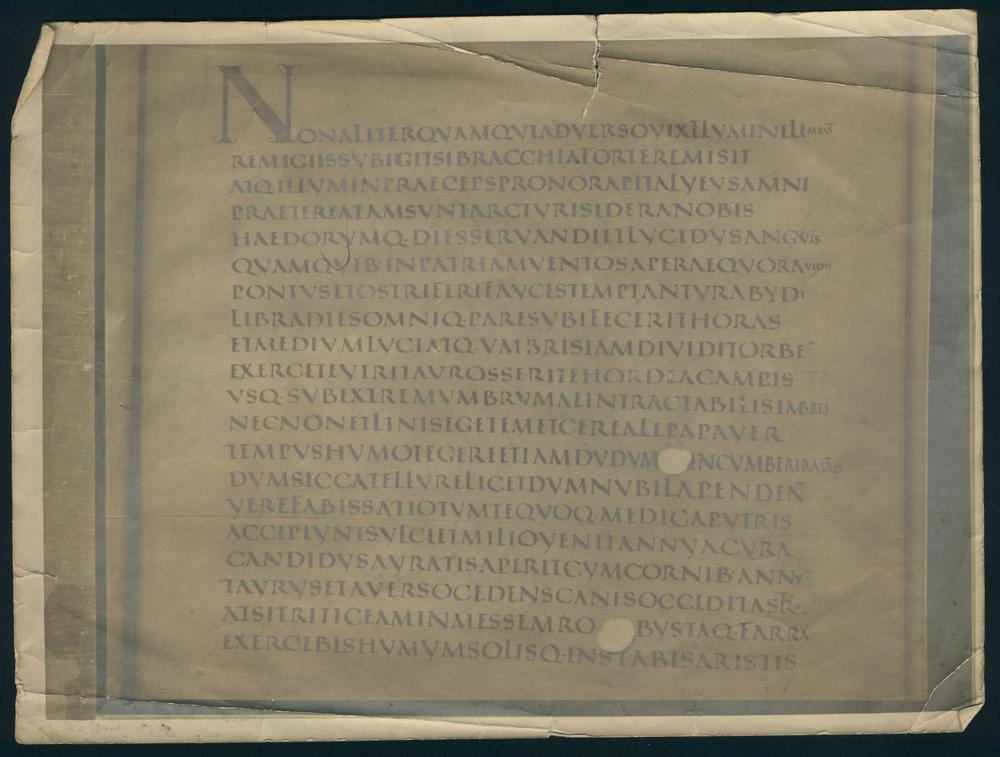 NONALITERQVAMQVIADVERSOVIXFLVMINELEMBVM
REMIGIISSVBIGITSIBRACCHIAFORTEREMISIT
ATQ·ILLVMINPRAECEPSPRONORAPITALVEVSAMNI
PRAETEREATAMSVNTARCTVRISIDERANOBIS
HAEDORVMQ·DIESSERVANDIETLVCIDVSANGVIS
QVAMQVIB·INPATRIAMVENTOSAPERAEQVORAVECTIS
PONTVSETOSTRIFERIFAVCESTEMPTANTVRABYDI
LIBRADIESOMNIQ·PARESVBIFECERITHORAS
ETMEDIVMLVCIATQ·VMBRISIAMDIVIDITORBE
EXERCETEVIRITAVROSSERITEHORDEACAMPIS
VSQ·SVBEXTREMVMBRVMALINTRACTABILISIMBRES
NECNONETLINISEGETEMETCEREALEPAPAVER
TEMPVSHVMOTEGEREETIAMDVDVM INCVMBERERASTRIS
DVMSICCATELLVRELICETDVMNVBILAPENDENT
VEREFABISSATIOTVMTEQVOQ·MEDICAPVTRIS
ACCIPIVNTSVLCIETMILIOVENITANNVACVRA
CANDIDVSAVRATISAPERITCVMCORNIB·ANNV
TAVRVSETAVERSOCEDENSCANISOCCIDITASTRO
ATSITRITICEAMINMESSEMRO BVSTAQ·FARRA
EXERCEBISHVMVMSOLISQ·INSTABISARISTIS